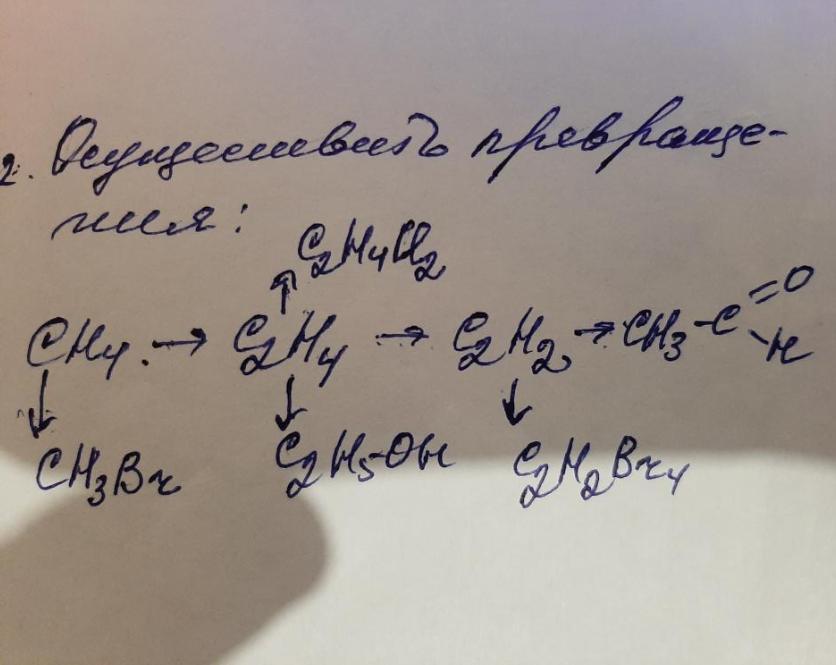 2. Осуществить превраще-
ния:
C₂H₄Cl₂
↑
CH₄. → C₂H₄ → C₂H₂ → CH₃-C=O-H
↓ ↓ ↓
CH₃Br C₂H₅-OH C₂H₂Br₄